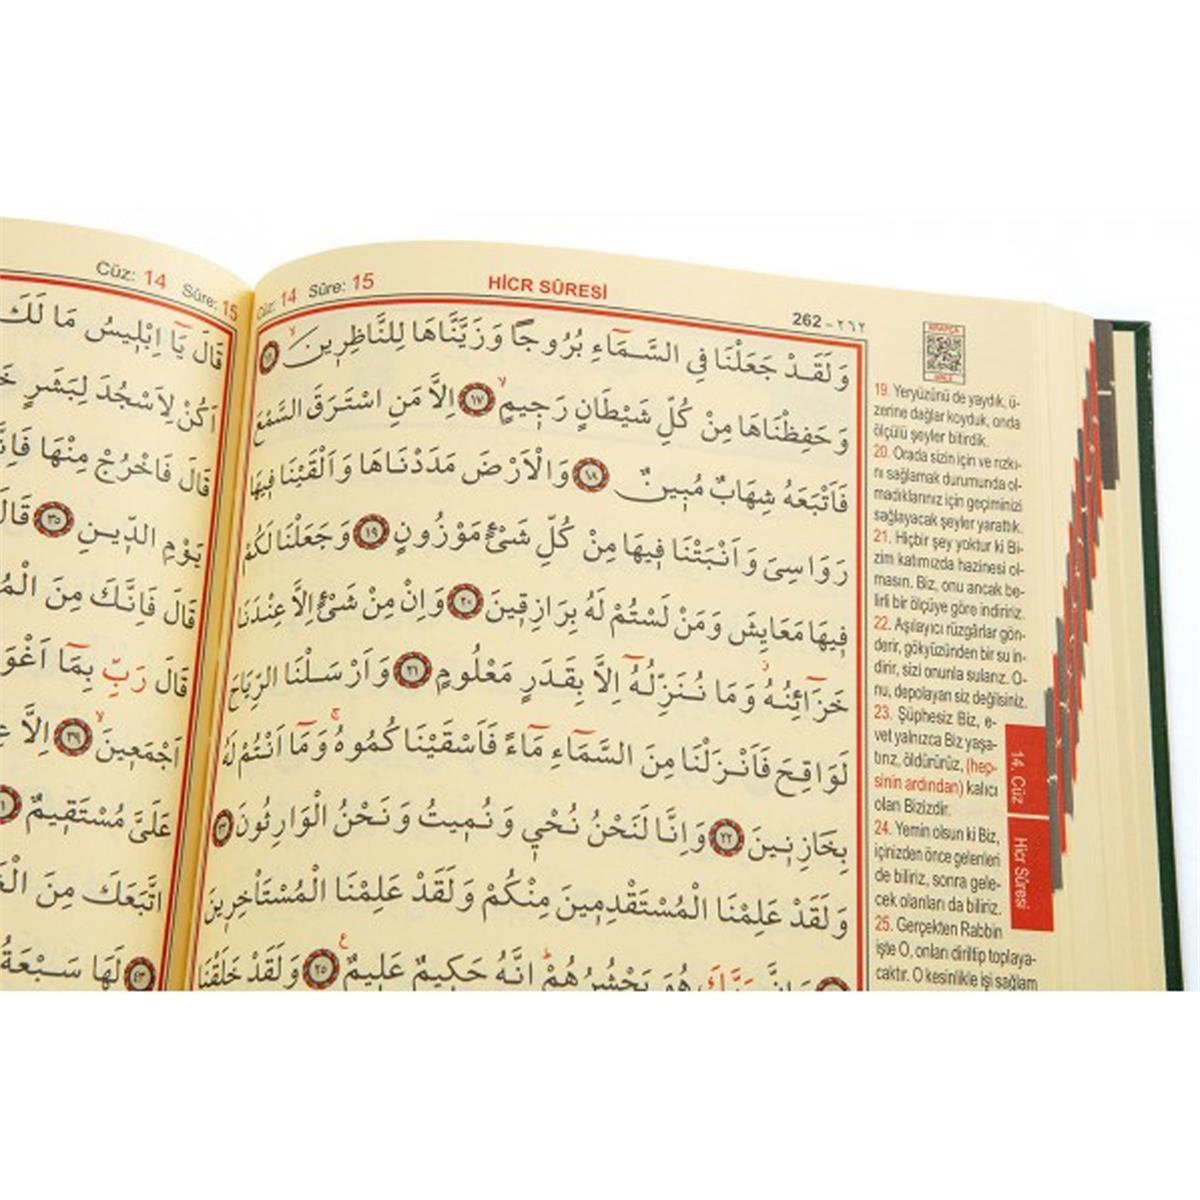 Cüz: 14 Sûre: 15
قَالَ يَٓا اِبْلٖيسُ مَا لَكَ
اَكُنْ لِاَسْجُدَ لِبَشَرٍ
قَالَ فَاخْرُجْ مِنْهَا
يَوْمِ الدّٖينِ ﴿٣٥﴾
قَالَ فَاِنَّكَ مِنَ
قَالَ رَبِّ بِمَٓا
اَجْمَعٖينَ ﴿٣٩﴾ اِلَّا
عَلَىَّ مُسْتَقٖيمٌ
اتَّبَعَكَ مِنَ
لَهَا سَبْعَةُ ﴿٤٣﴾
Cüz: 14 Sûre: 15 HİCR SÛRESİ 262 - ٢٦٢
وَلَقَدْ جَعَلْنَا فِي السَّمَٓاءِ بُرُوجًا وَزَيَّنَّاهَا لِلنَّاظِرٖينَ ﴿١٦﴾
وَحَفِظْنَاهَا مِنْ كُلِّ شَيْطَانٍ رَجٖيمٍ ﴿١٧﴾ اِلَّا مَنِ اسْتَرَقَ السَّمْعَ
فَاَتْبَعَهُ شِهَابٌ مُبٖينٌ ﴿١٨﴾ وَالْاَرْضَ مَدَدْنَاهَا وَاَلْقَيْنَا فٖيهَا
رَوَاسِيَ وَاَنْبَتْنَا فٖيهَا مِنْ كُلِّ شَيْءٍ مَوْزُونٍ ﴿١٩﴾ وَجَعَلْنَا لَكُمْ
فٖيهَا مَعَايِشَ وَمَنْ لَسْتُمْ لَهُ بِرَازِقٖينَ ﴿٢٠﴾ وَاِنْ مِنْ شَيْءٍ اِلَّا عِنْدَنَا
خَزَٓائِنُهُ وَمَا نُنَزِّلُهُٓ اِلَّا بِقَدَرٍ مَعْلُومٍ ﴿٢١﴾ وَاَرْسَلْنَا الرِّيَاحَ
لَوَاقِحَ فَاَنْزَلْنَا مِنَ السَّمَٓاءِ مَٓاءً فَاَسْقَيْنَاكُمُوهُ وَمَٓا اَنْتُمْ لَهُ
بِخَازِنٖينَ ﴿٢٢﴾ وَاِنَّا لَنَحْنُ نُحْيٖ وَنُمٖيتُ وَنَحْنُ الْوَارِثُونَ ﴿٢٣﴾
وَلَقَدْ عَلِمْنَا الْمُسْتَقْدِمٖينَ مِنْكُمْ وَلَقَدْ عَلِمْنَا الْمُسْتَاْخِرٖينَ
وَاِنَّ رَبَّكَ هُوَ يَحْشُرُهُمْ اِنَّهُ حَكٖيمٌ عَلٖيمٌ ﴿٢٥﴾ وَلَقَدْ خَلَقْنَا
19. Yeryüzünü de yaydık, ü-
zerine dağlar koyduk, onda
ölçülü şeyler bitirdik.
20. Orada sizin için ve rızkı-
nı sağlamak durumunda ol-
madıklarınız için geçiminizi
sağlayacak şeyler yarattık.
21. Hiçbir şey yoktur ki Bi-
zim katımızda hazinesi ol-
masın. Biz, onu ancak be-
lirli bir ölçüye göre indiririz.
22. Aşılayıcı rüzgârlar gön-
derir, gökyüzünden bir su in-
dirir, sizi onunla sularız. O-
nu, depolayan siz değilsiniz.
23. Şüphesiz Biz, e-
vet yalnızca Biz yaşa-
tırız, öldürürüz, (hep-
sinin ardından) kalıcı
olan Bizizdir.
24. Yemin olsun ki Biz,
içinizden önce gelenleri
de biliriz, sonra gele-
cek olanları da biliriz.
25. Gerçekten Rabbin
işte O, onları diriltip toplaya-
caktır. O kesinlikle işi sağlam
14. Cüz
Hicr Sûresi